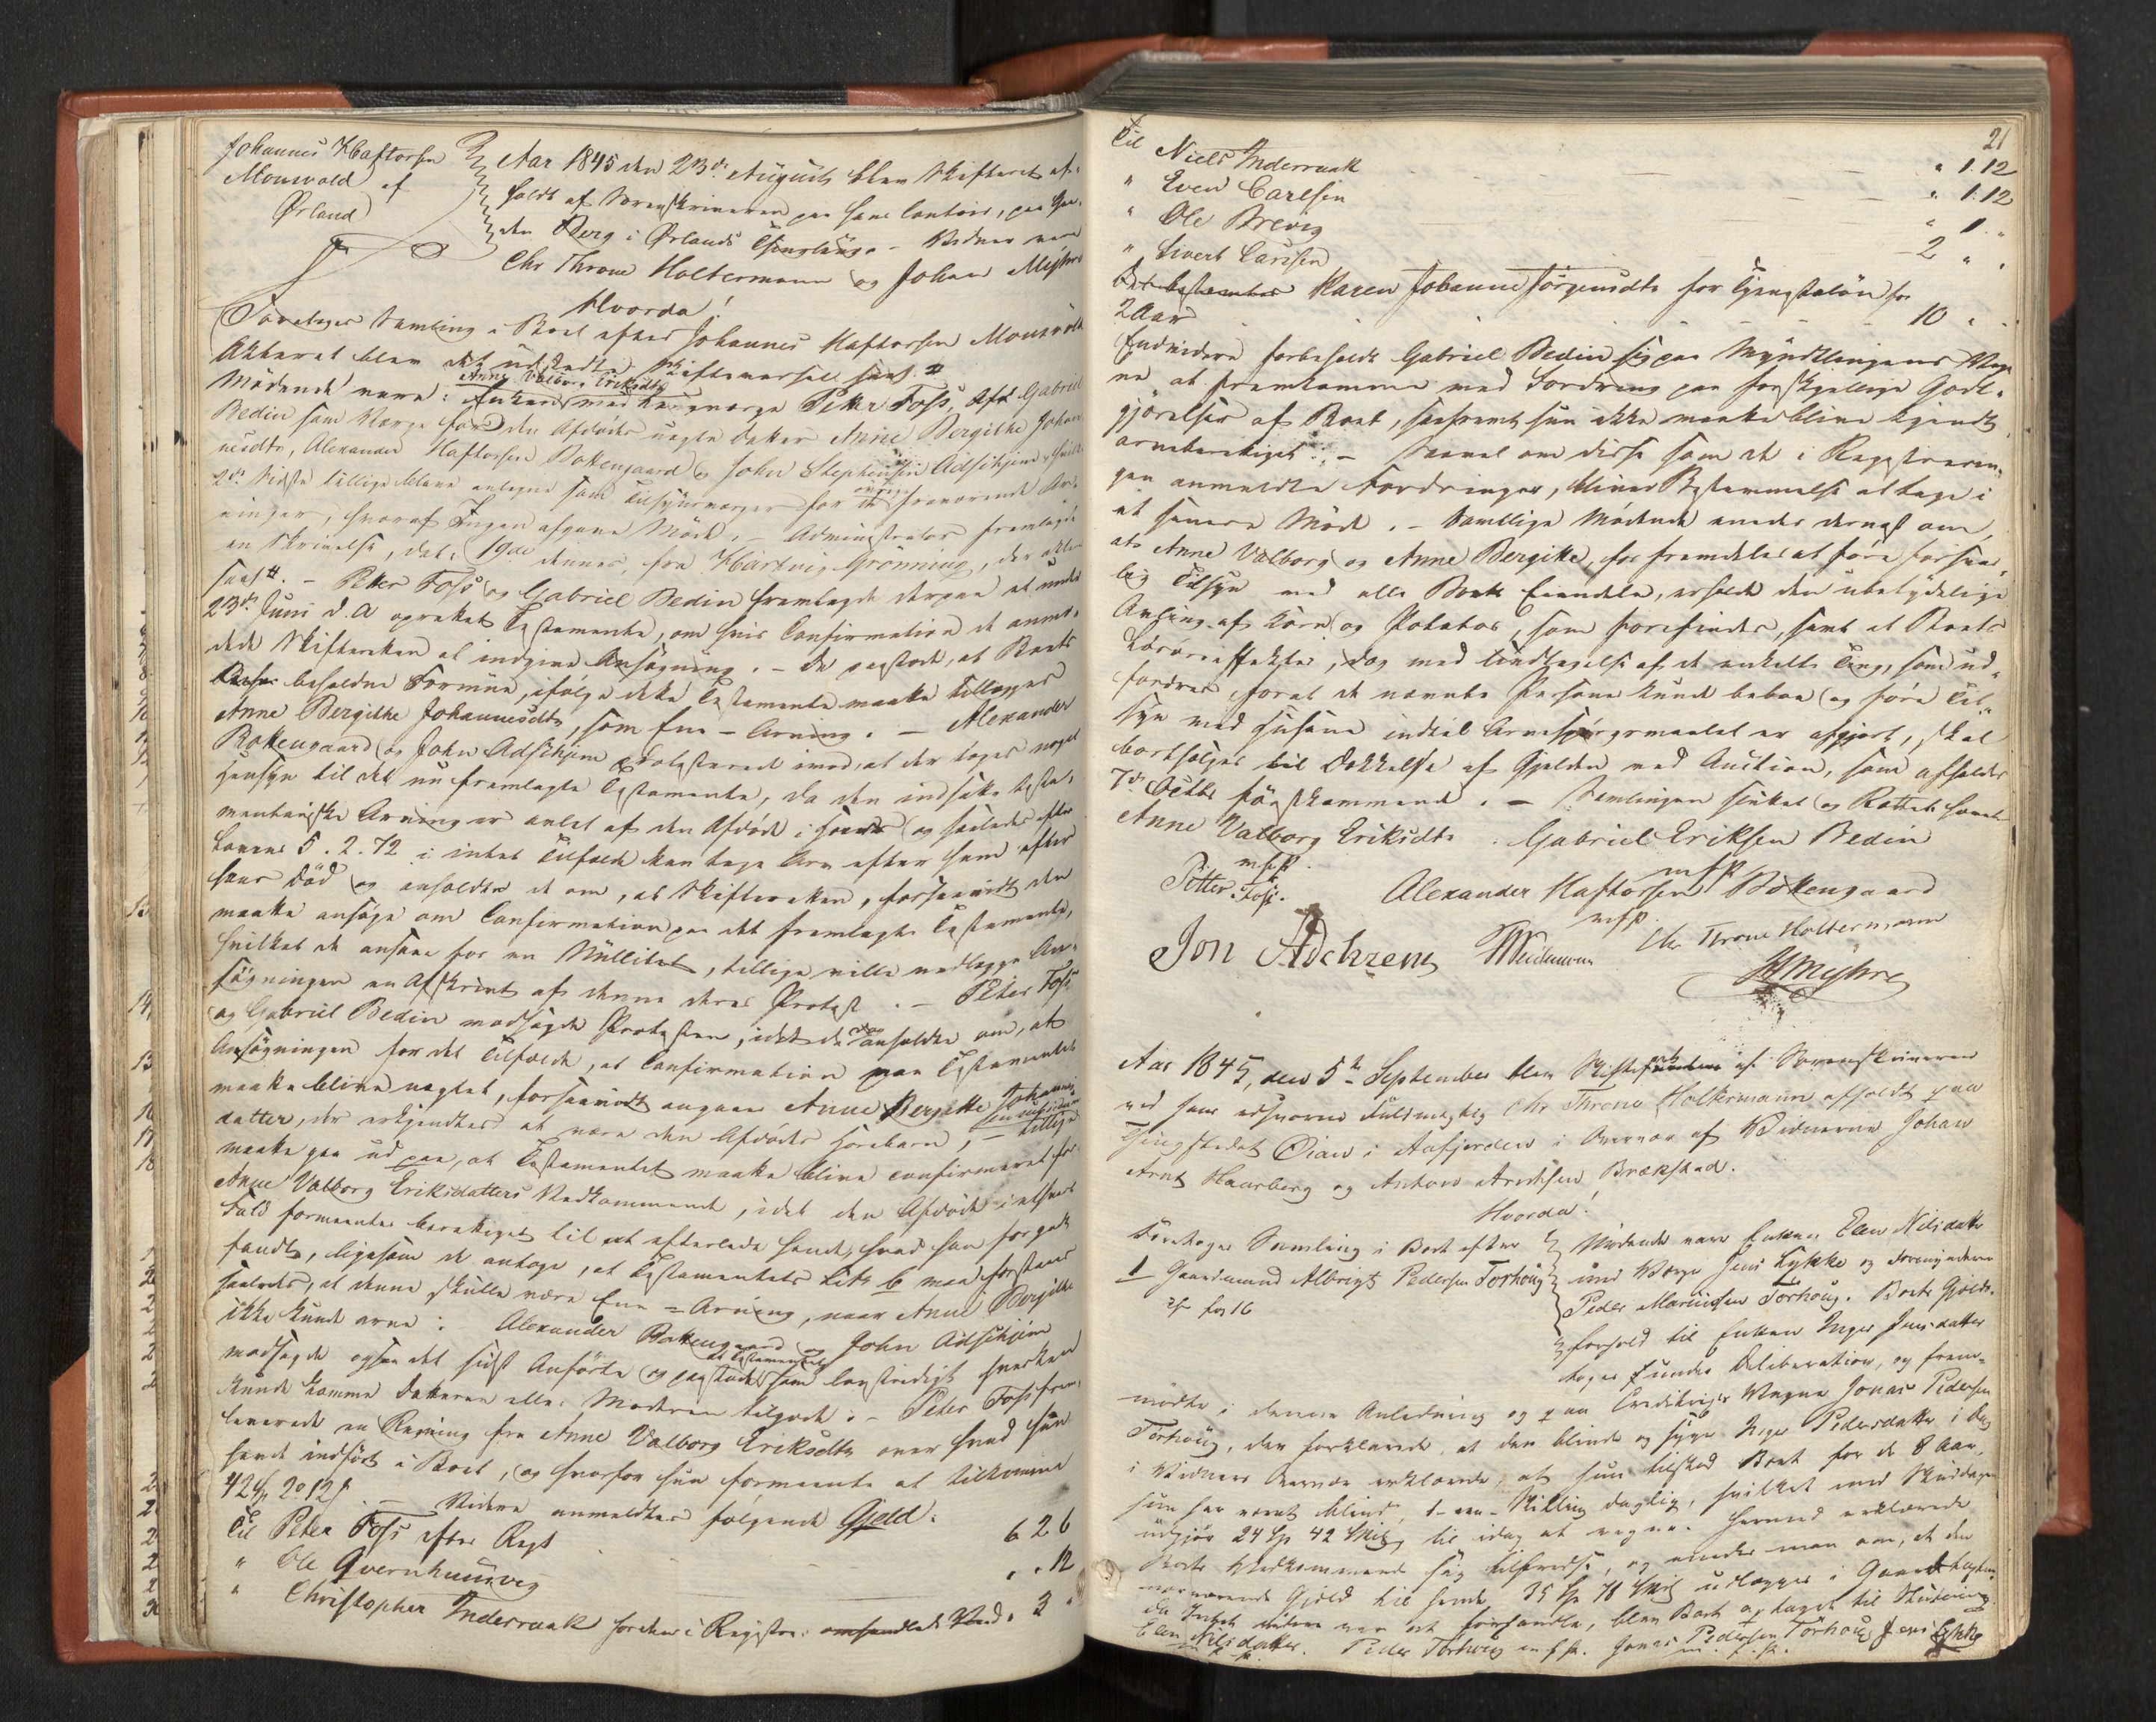 Johannes Haftorsen
Monsvold af
Ørland
Aar 1845 den 23de August blev Skifteret af-
holdt af Sorenskriveren paa hans Contoir, paa Gaar-
den Berg i Ørlands Thinglaug. - Vidner vare
Chr Throne Holtermann og Johan Myhre
Hvorda!
Foretoges Samling i Boet efter Johannes Haftorsen Monsvold
Mødende vare: Enken Anne Valborg Eriksdtr med Laugværge Petter Foss, Gabriel
Bedin som Værge for den Afdødes uægte Datter Anne Bergithe Johan-
nesdtr, Alexander Haftorsen Bottengaard og John Stephensen Aidschjem, hvilke
2de sidste tillige bleve antagne som Tilsynsværger for de øvrige fraværende Ar-
vinger, hvoraf Ingen afgave Møde. - Administrator fremlagde
en Skrivelse, dat. 19de dennes, fra Hartvig Grønning, der
- Peter Foss og Gabriel Bedin fremlagde derpaa et under
23de Juni d. A oprettet Testamente, om hvis Confirmation de anmo-
dede Skifteretten at indgive Ansøgning. - De paastod, at Boets
beholdne Formue, ifølge dette Testamente maatte tillægges
Anne Bergithe Johannesdtr, som Ene-Arving. - Alexander
Bottengaard og John Aidschjem protesterede imod, at der toges noget
Hensyn til det nu fremlagte Testamente, da den indsatte testa-
mentariske Arving er avlet af den Afdøde i Hoer og saaledes efter
Lovens 5.2.72 i intet Tilfælde kan tage Arv efter ham efter
hans Død og anholdte de om, at Skifteretten, forsaavidt den
maatte ansøge om Confirmation paa det fremlagte Testamente,
hvilket de ansaae for en Nullitet, tillige ville vedlægge An-
søgningen en Afskrivt af denne deres Protest. - Peter Foss
og Gabriel Bedin modsagde Protesten, idet de anholdte om, at
Ansøgningen for det Tilfælde, at Confirmation paa Testamentet
maatte blive nægtet, forsaavidt angaaer Anne Bergitte Johannes-
datter, der erkjendtes at være den Afdødes Horebarn, - tillige
maatte gaa ud paa, at Testamentet maatte blive confirmeret for
Anne Valborg Eriksdatters Vedkommende, idet den Afdøde i ethvert
Fald formeentes berettiget til at efterlade hende, hvad han forgodt
fandt, ligesom de antoge, at Testamentets Litr b maa forstaaes
saaledes, at denne skulle være Ene-Arving, naar Anne Bergitte
ikke kunde arve. Alexander Bottengaard og John Aidschjem
modsagde ogsaa det sidst Anførte og paastode at Testamentet som lovstridigt hverken
kunde komme Datteren eller Moderen tilgode. - Peter Foss frem-
leverede en Regning fra Anne Valborg Eriksdtr over hvad hun
havde indført i Boet, og hvorfor hun formeente at tilkomme
42 Sp 2 o 12 s. - Videre anmeldtes følgende Gjeld.
Til Peter Foss efter Regn 6 2 6
" Ole Qvernhuusvig " . 12
" Christopher Inderraak foruden i Registre: omhandlede Ved. 3 "
21
Til Niels Inderraak " 1. 12
" Even Carlsen " 1. 12
" Ole Brevig " 1 "
" Sivert Carlsen 2 " "
Karen Johanne Jørgensdtr for Tjenesteløn for
2 Aar 10 "
Endvidere forbeholdt Gabriel Bedin sig paa Myndtlingens Veg-
ne at fremkomme med Fordring paa forskjellige Godt-
gjørelser af Boet, saafremt hun ikke maatte blive kjendt
arveberettiget. - Saavel om disse som de i Registrerin-
gen anmeldte Fordringer, bliver Bestemmelse at tage i
et senere Møde. - Samtlige Mødende enedes dernæst om,
at Anne Valborg og Anne Bergitte, for fremdeles at føre forsvar-
lig Tilsyn med alle Boets Eiendele, erholdt den ubetydelige
Avling af Korn og Potatos, som forefindes, samt at Boets
Løsøreeffekter, dog med Undtagelse af de enkelte Ting, som ud-
fordres forat de nævnte Persone kunde beboe og føre Til-
syn med Husene indtil Arvespørgsmaalet er afgjort, skal
bortsælges til Dækkelse af Gjelden ved Auction, som afholdes
7de Octbr førstkommende. - Samlingen sluttet og Rettet hævet
Anne Valborg Eriksdtr. Gabriel Eriksen Bedin
m.f.P. m.f.P.
Petter Foss. Alexander Haftorsen Bottengaard
m.f.P.
Jon Adchzem Weidemann Chr Throne Holtermann
JMyhre
Aar 1845, den 5te September blev Skifteret af Sorenskriveren
ved hans edsvorne Fuldmægtig Chr Throne Holtermann afholdt paa
Thingstedet Øian i Aafjorden i Overvær af Vidnerne Johan
Arnt Haarberg og Anton Arntsen Brækstad.
Hvorda!
Foretoges Samling i Boet efter
1 Gaardmand Albrigt Pedersen Torhoug
cfr fol 16
Mødende vare Enken Elen Nilsdatter
med Værge Jens Lykke og Formynderen
Peder Mariussen Torhoug. Boets Gjelds-
forhold til Enken Inger Jensdatter
toges under Deliberation, og frem-
mødte i denne Anledning og paa Creditrices Vegne Jonas Pedersen
Torhoug, der forklarede, at den blinde og syge Inger Pedersdatter i Dag
i Vidners Overvær erklærede, at hun tilstod Boet for de 8 Aar,
hun har været blind, 1 - een - Skilling daglig, hvilket med Skuddage
udgjør 24 Sp 42 Skill til idag at regne. Hermed erklærede
Boets Vedkommende sig tilfreds, og enedes man om, at den
nærværende Gjeld til hende 35 Sp 78 Skil udlægges i
da Intet videre var at forhandle, blev Boet optaget til Slutning
Elen Nilsdatter. Peder Torhoug m.f.P. Jonas Pedersen Torhoug Jens Lykke
m.f.P.